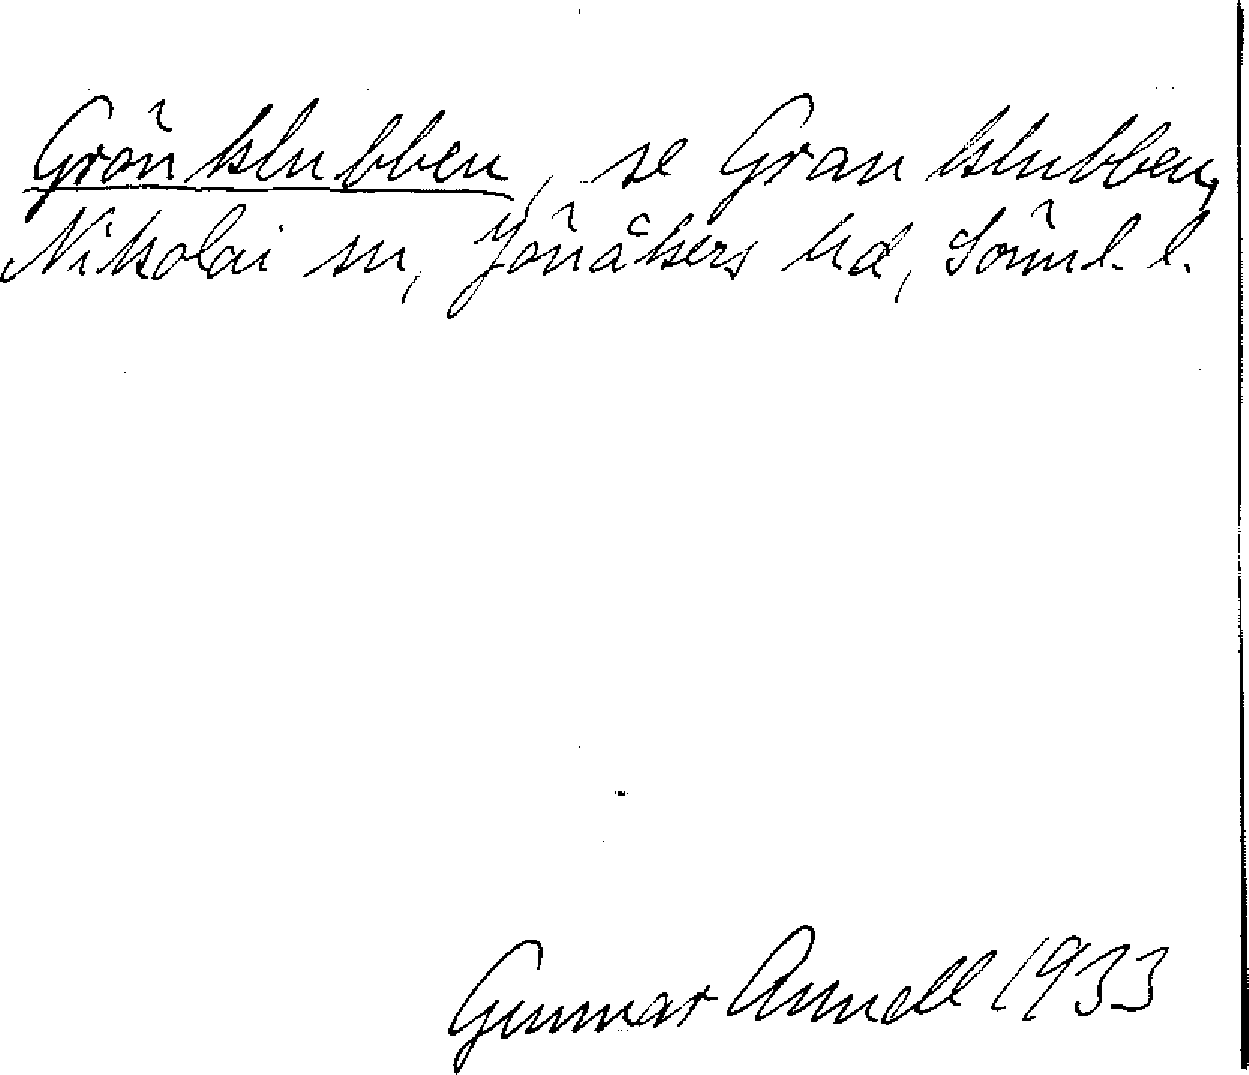 Grönklubben, se Granklubben,
Nikolai sn, Jönåkers hd, Sörml. l.
Gunnar Annell 1933